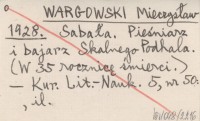 WARGOWSKI Mieczysław
1928. Sabała. Pieśniarz
i bajarz Skalnego Podhala.
(W 35 rocznicę śmierci.)
— Kur. Lit.-Nauk. 5, nr 50.
, il.